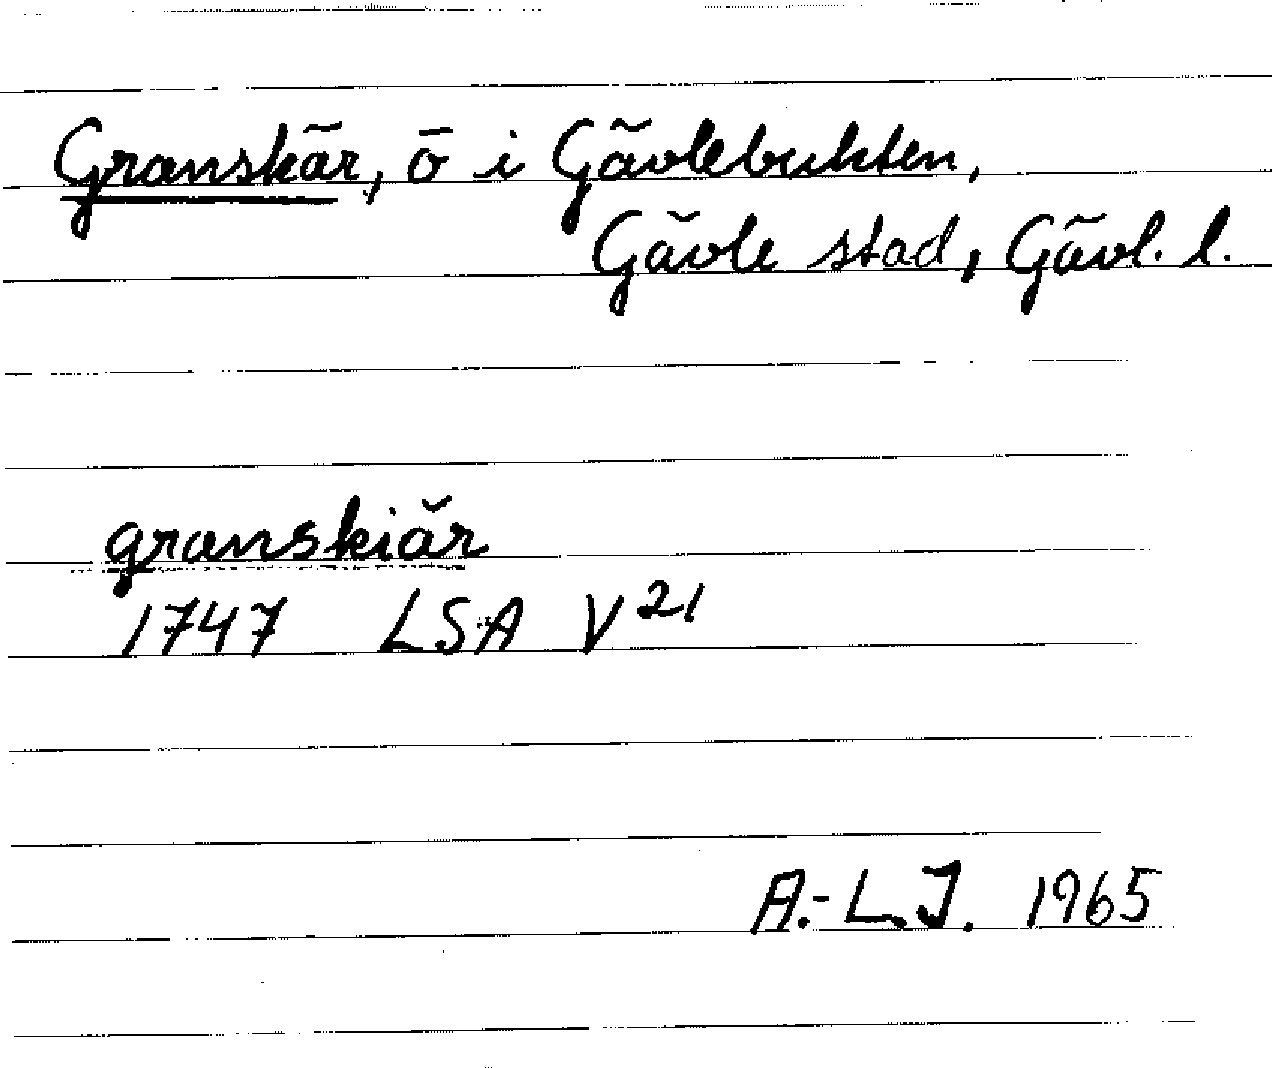 Granskär, ö i Gävlebukten,
Gävle stad, Gävl. l.
granskiär
1747 LSA V²¹
A.-L.J. 1965